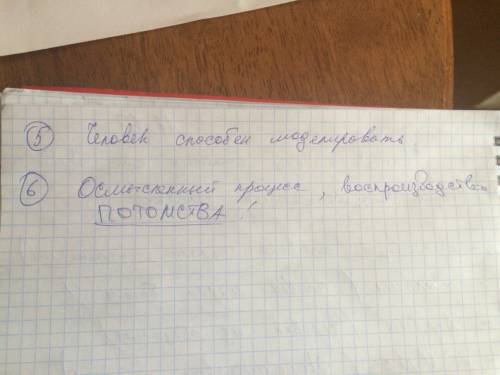 5 Человек способен моделировать
6 Осмысленный процесс, воспроизводства
ПОТОМСТВА!